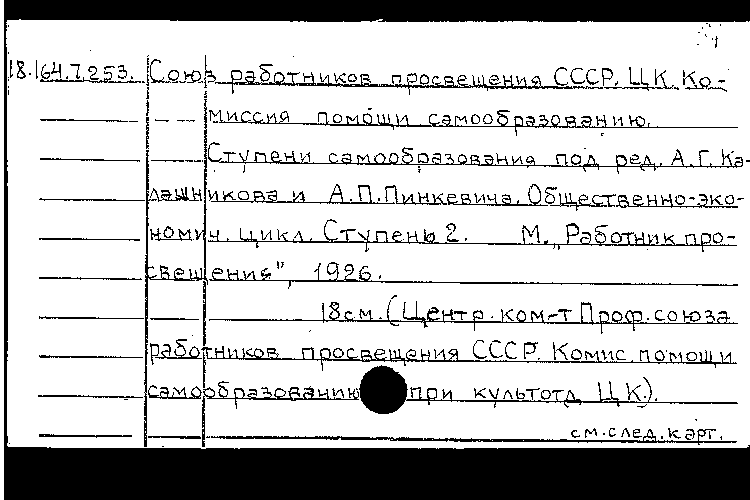 18.164.7.253. Союз работников просвещения СССР. ЦК. Ко-
миссия помощи самообразованию.
Ступени самообразования под ред. А.Г. Ка-
лашникова и А.П. Пинкевича. Общественно-эко-
номич. цикл. Ступень 2. М., „Работник про-
свещения", 1926.
18 см. (Центр. ком-т Проф. союза
работников просвещения СССР. Комис. помощи
самообразованию при культотд. ЦК).
см. след. карт.